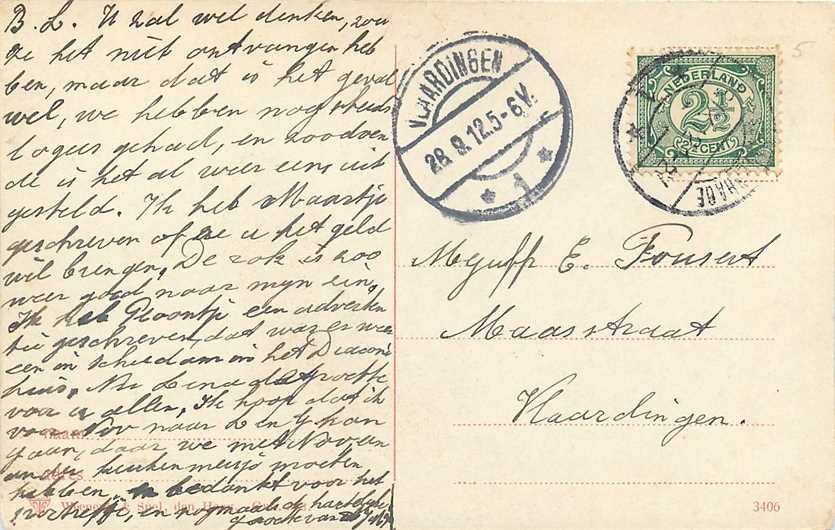 B. L. U zal wel denken, zou
ze het niet ontvangen heb
ben, maar dat is het geval
wel, we hebben nog steeds
logees gehad, en zoodoen
de is het al weer eens uit
gesteld. Ik heb Maartje
geschreven of ze u het geld
wil brengen. De rok is zoo
weer goed naar mijn zin,
Ik heb een adverten
tie geschreven, dat was er weer
een in Schiedam in het Diaconi
huis. Nu Lena de groete
voor u allen, Ik hoop dat ik
voor Nov naar L en Y kan
gaan, daar we met Nov een
ander keukenmeisje moeten
hebben bedankt voor het
en nogmaals de hartelijke
groete van
Naam
Adres
VLAARDINGEN
28.9.12.5-6V.
* 1 *
NEDERLAND
2½
(2½ CENT)
HAGE
5
Mejuff E. Fousert
Maasstraat
Vlaardingen.
Weenenk & Snel, den Haag
3406